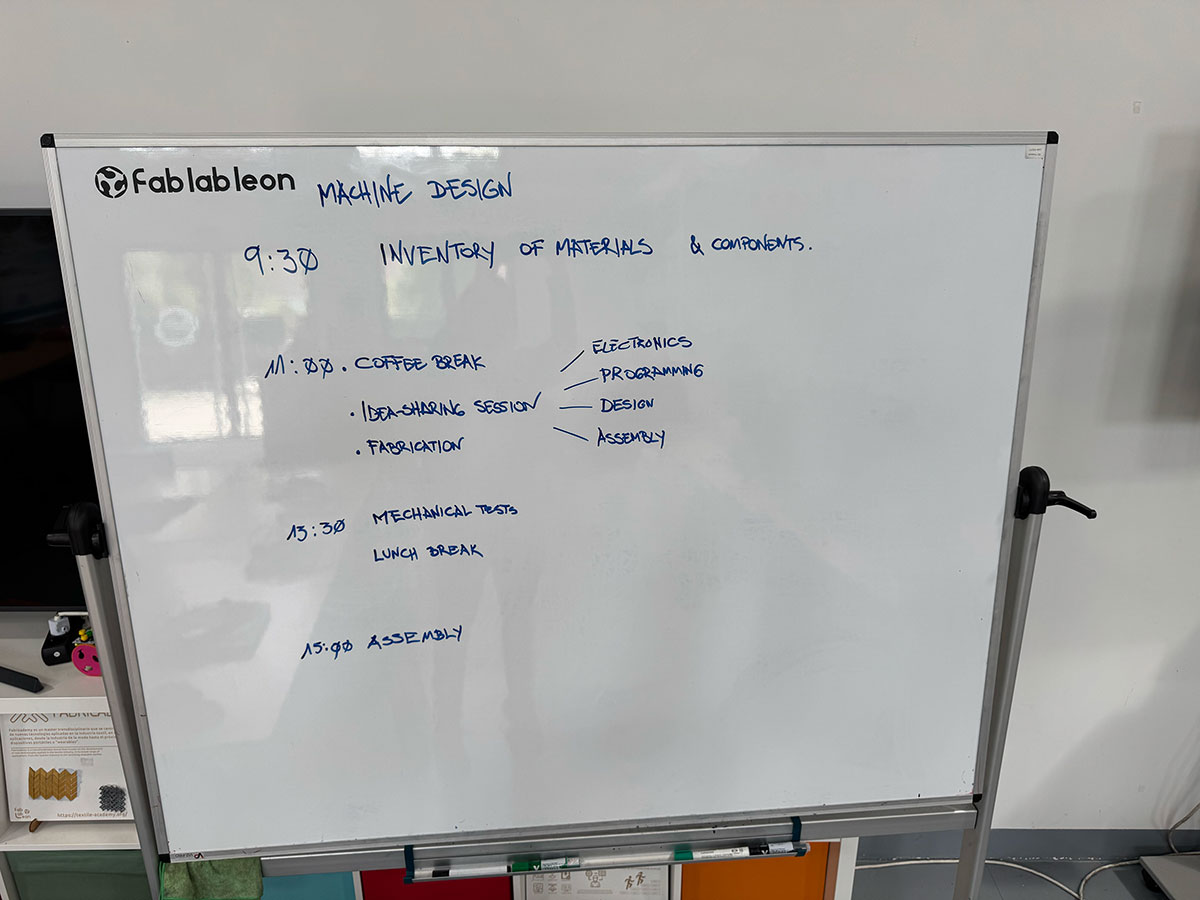 fab lab leon MACHINE DESIGN
9:30 INVENTORY OF MATERIALS & COMPONENTS.
11:00 . COFFEE BREAK
. IDEA-SHARING SESSION
ELECTRONICS
PROGRAMMING
DESIGN
ASSEMBLY
. FABRICATION
13:30 MECHANICAL TESTS
LUNCH BREAK
15:00 ASSEMBLY
https://textile-academy.org/